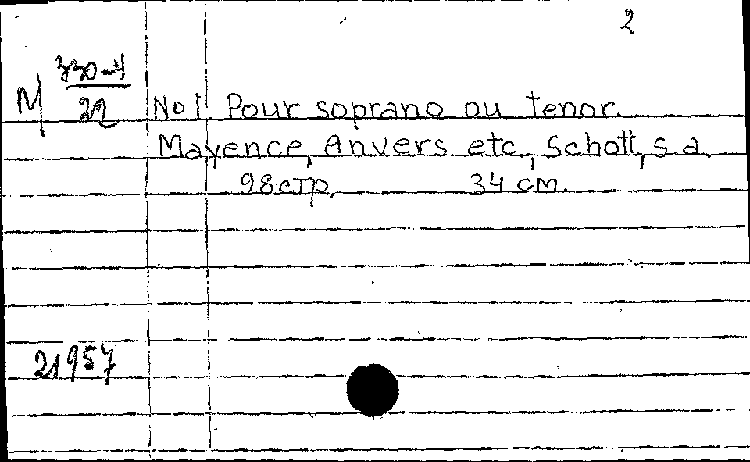 2
M 330-4
22
No 1 Pour soprano ou tenor.
Mayence, Anvers etc., Schott, s.a.
98 стр. 34 см.
21957